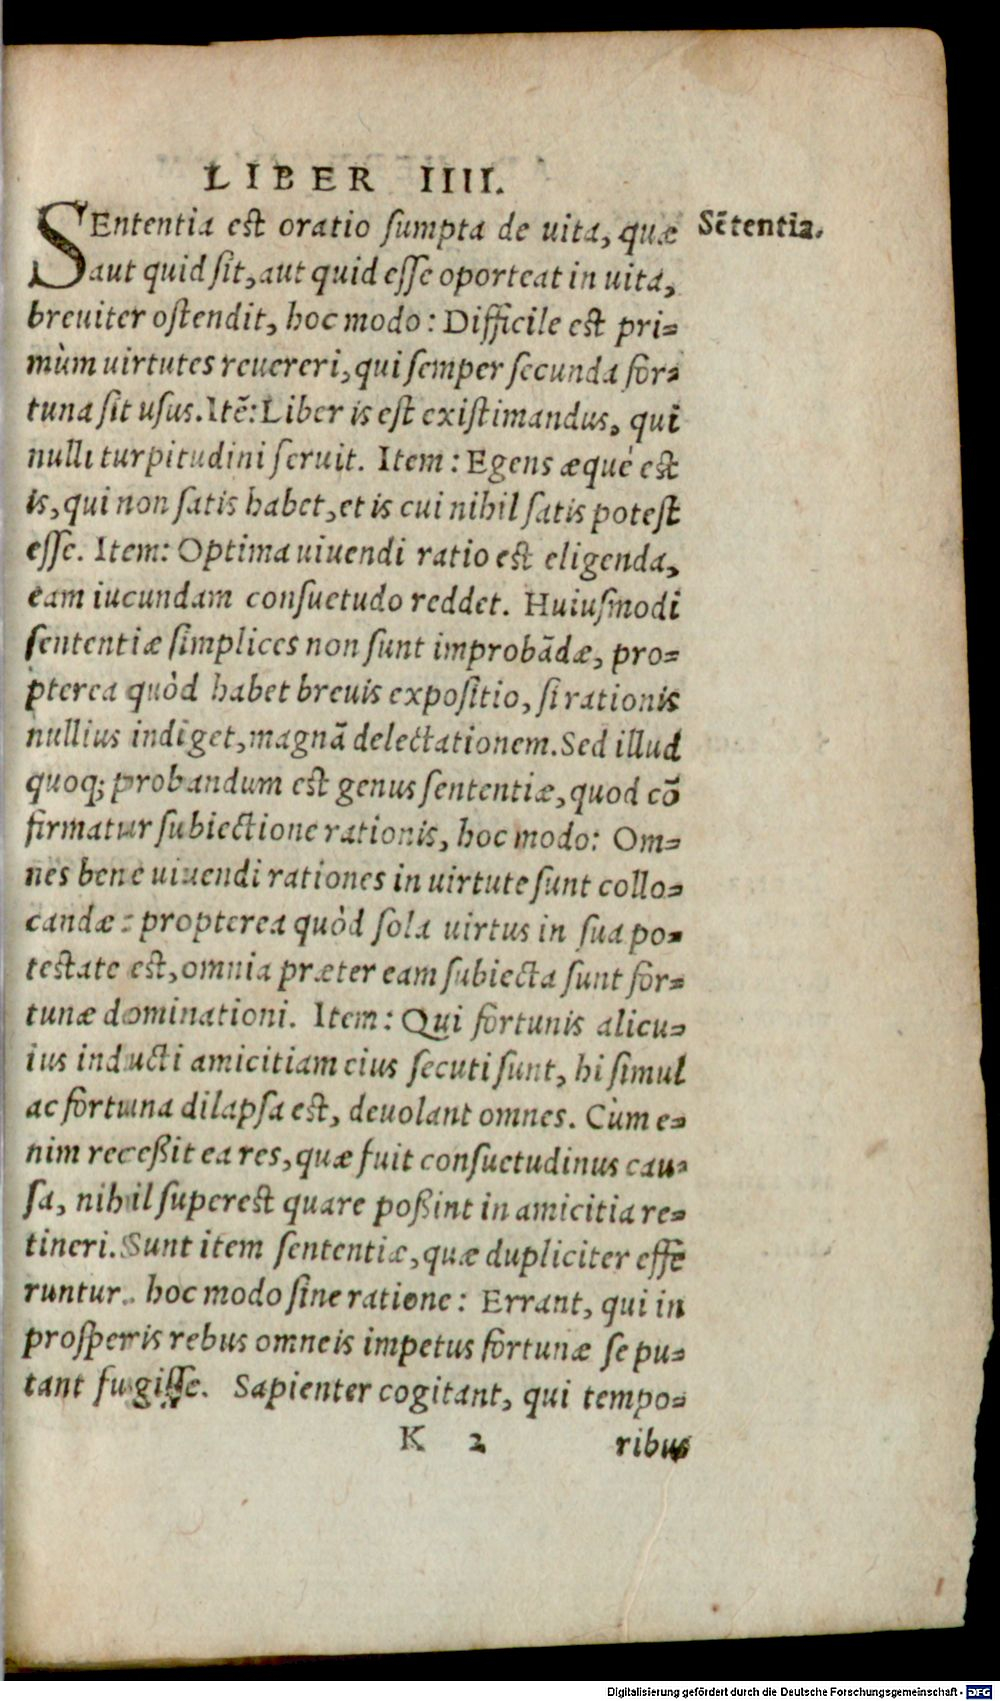 LIBER IIII.
SEntentia est oratio sumpta de uita, quæ
Sẽtentia.
aut quid sit, aut quid esse oporteat in uita,
breuiter ostendit, hoc modo: Difficile est pri=
mùm uirtutes reuereri, qui semper secunda for=
tuna sit usus. Itẽ: Liber is est existimandus, qui
nulli turpitudini seruit. Item: Egens æquè est
is, qui non satis habet, et is cui nihil satis potest
esse. Item: Optima uiuendi ratio est eligenda,
eam iucundam consuetudo reddet. Huiusmodi
sententiæ simplices non sunt improbãdæ, pro=
pterea quòd habet breuis expositio, si rationis
nullius indiget, magnã delectationem. Sed illud
quoq; probandum est genus sententiæ, quod cõ
firmatur subiectione rationis, hoc modo: Om=
nes bene uiuendi rationes in uirtute sunt collo=
candæ: propterea quòd sola uirtus in sua po=
testate est, omnia præter eam subiecta sunt for=
tunæ dominationi. Item: Qui fortunis alicu=
ius inducti amicitiam eius secuti sunt, hi simul
ac fortuna dilapsa est, deuolant omnes. Cùm e=
nim receßit ea res, quæ fuit consuetudinus cau=
sa, nihil superest quare poßint in amicitia re=
tineri. Sunt item sententiæ, quæ dupliciter effe
runtur. hoc modo sine ratione: Errant, qui in
prosperis rebus omneis impetus fortunæ se pu=
tant fugisse. Sapienter cogitant, qui tempo=
K 2 ribus
Digitalisierung gefördert durch die Deutsche Forschungsgemeinschaft - DFG